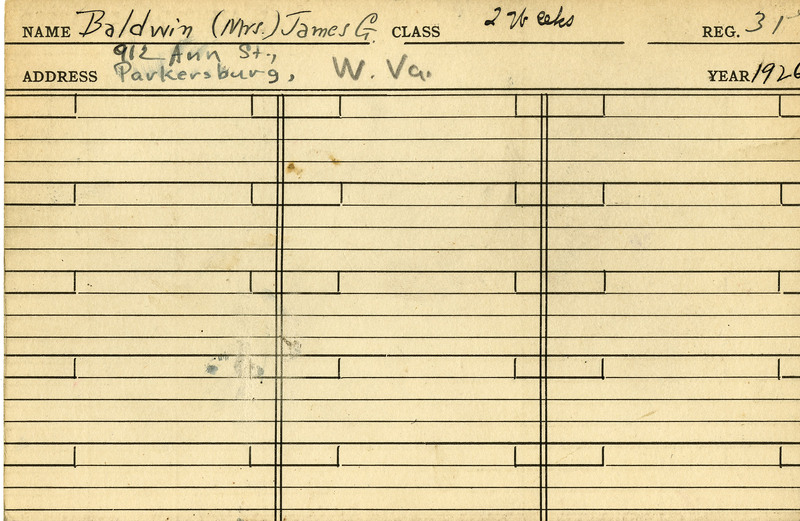 NAME Baldwin (Mrs.) James G. CLASS 2 Weeks REG. 31
912 Ann St.,
ADDRESS Parkersburg, W. Va. YEAR 1926